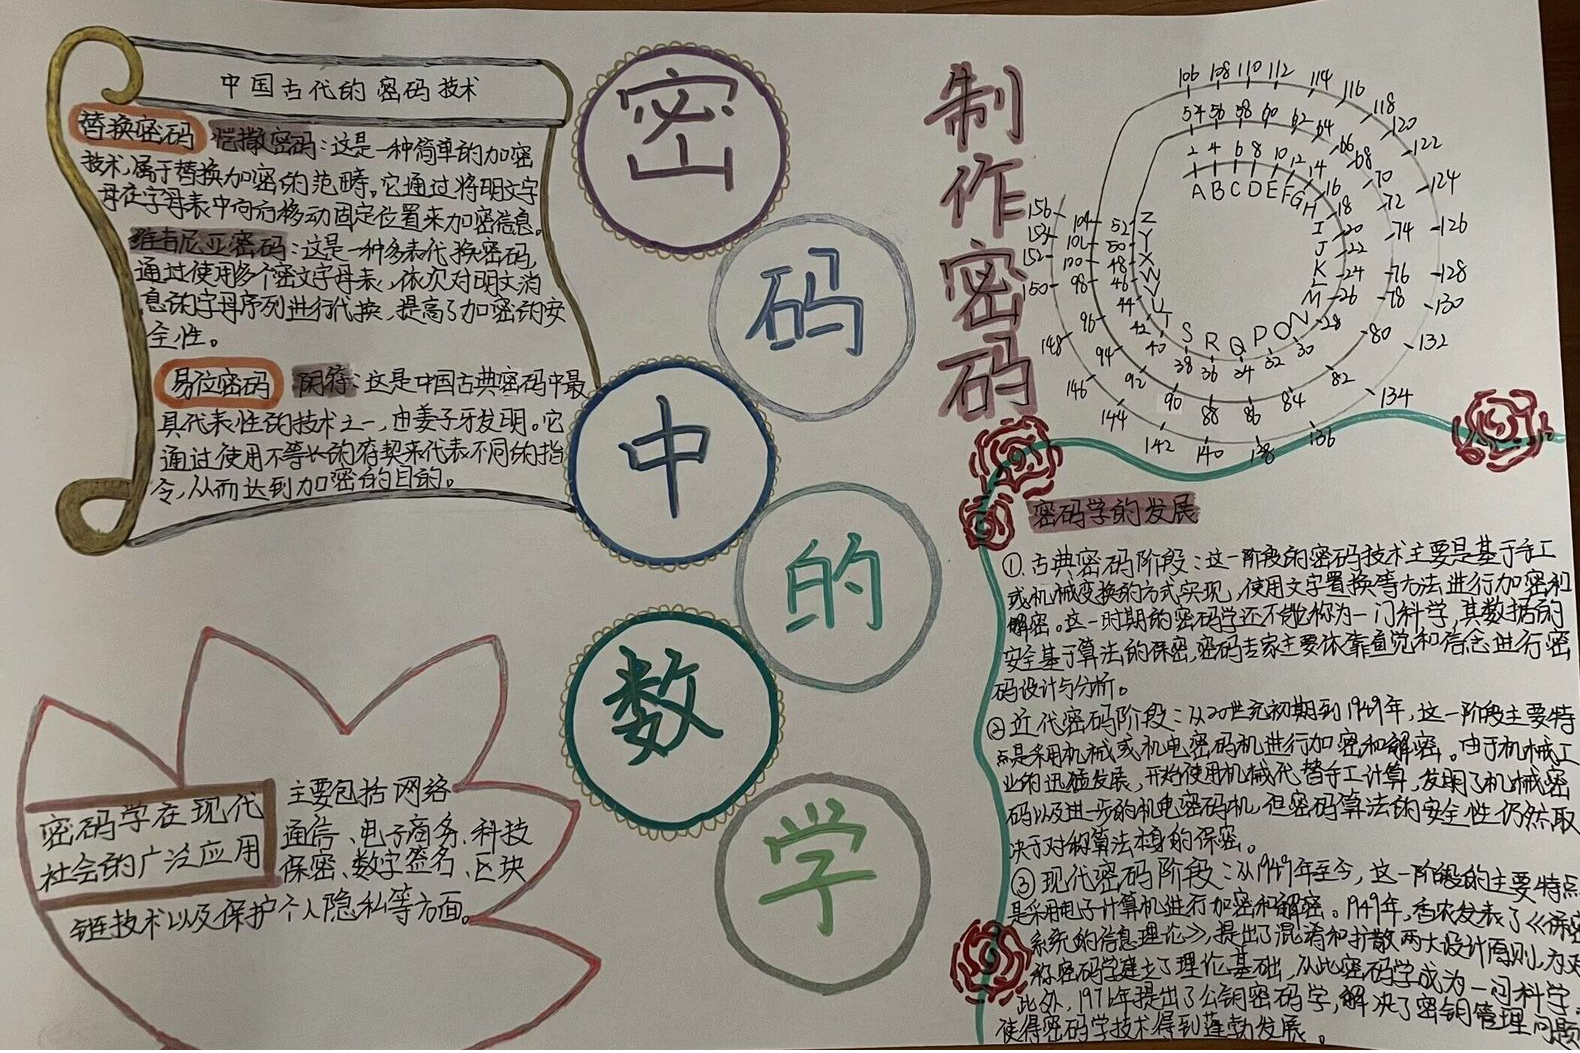 中国古代的密码技术
替换密码 恺撒密码：这是一种简单的加密
技术，属于替换加密的范畴。它通过将明文字
母在字母表中向后移动固定位置来加密信息。
维吉尼亚密码：这是一种多表代换密码，
通过使用多个密文字母表，依次对明文消
息的字母序列进行代换，提高了加密的安
全性。
易位密码 阴符：这是中国古典密码中最
具代表性的技术之一，由姜子牙发明。它
通过使用不等长的符契来代表不同的指
令，从而达到加密的目的。
密
码
中
的
数
学
密码学在现代
社会的广泛应用
主要包括网络
通信、电子商务、科技
保密、数字签名、区块
链技术以及保护个人隐私等方面。
制
作
密
码
106 108 110 112 114 116 118 120 122 124 126 128 130 132 134 136 138 140 142 144 146 148 150 152 156
54 56 58 60 62 64 66 68 70 72 74 76 78 80 82 84 86 88 90 92 94 96 98 100 104
2 4 6 8 10 12 14 16 18 20 22 24 26 28 30 32 34 36 38 40 42 44 46 48 50 52
A B C D E F G H I J K L M N O P Q R S T U V W X Y Z
密码学的发展
①.古典密码阶段：这一阶段的密码技术主要是基于手工
或机械变换的方式实现，使用文字置换等方法进行加密和
解密。这一时期的密码学还不能称为一门科学，其数据的
安全基于算法的保密，密码专家主要依靠直觉和信念进行密
码设计与分析。
②近代密码阶段：从20世纪初期到1949年，这一阶段主要特
点是采用机械或机电密码机进行加密和解密。由于机械工
业的迅猛发展，开始使用机械代替手工计算，发明了机械密
码以及进一步的机电密码机，但密码算法的安全性仍然取
决于对称算法本身的保密。
③现代密码阶段：从1949年至今，这一阶段的主要特点
是采用电子计算机进行加密和解密。1949年，香农发表了《保密
系统的信息理论》，提出了混淆和扩散两大设计原则，为对
称密码学建立了理论基础，从此密码学成为一门科学。
此外，1976年提出了公钥密码学，解决了密钥管理问题
使得密码学技术得到蓬勃发展。